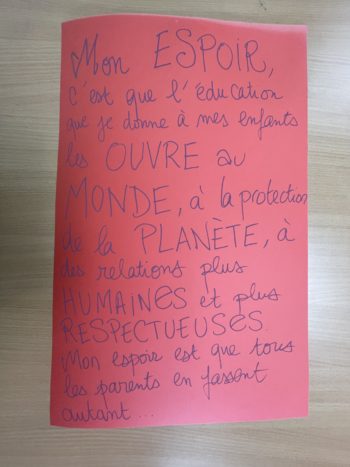 Mon ESPOIR,
c'est que l'éducation
que je donne à mes enfants
les OUVRE au
MONDE, à la protection
de la PLANÈTE, à
des relations plus
HUMAINES et plus
RESPECTUEUSES.
Mon espoir est que tous
les parents en fassent
autant...